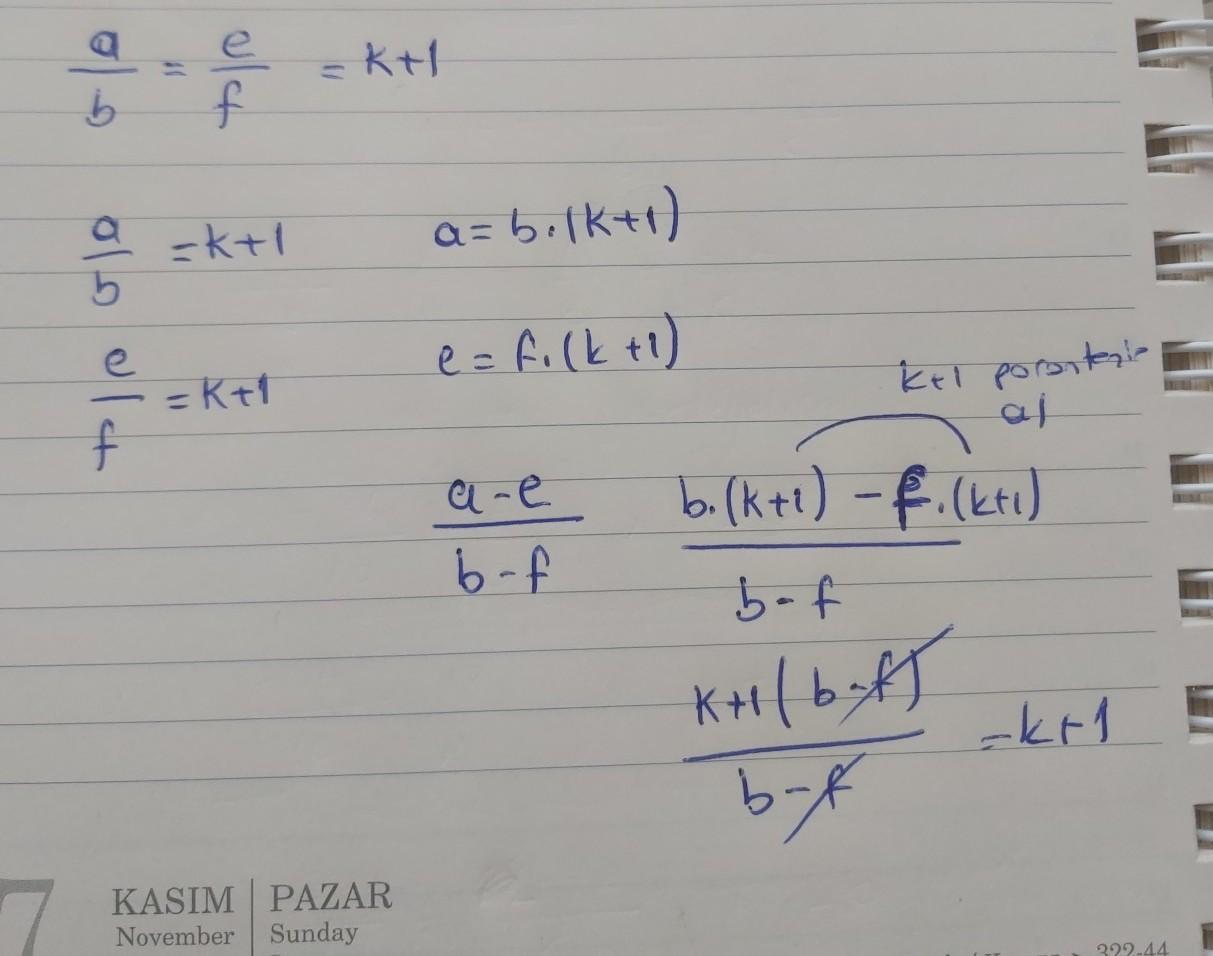 a/b = e/f = k+1
a/b = k+1    a = b.(k+1)
e/f = k+1    e = f.(k+1)
k+1 parantezine
al
(a-e)/(b-f)    (b.(k+1) - f.(k+1))/(b-f)
k+1(b-f)/(b-f) = k+1
7
KASIM | PAZAR
November | Sunday
322-44